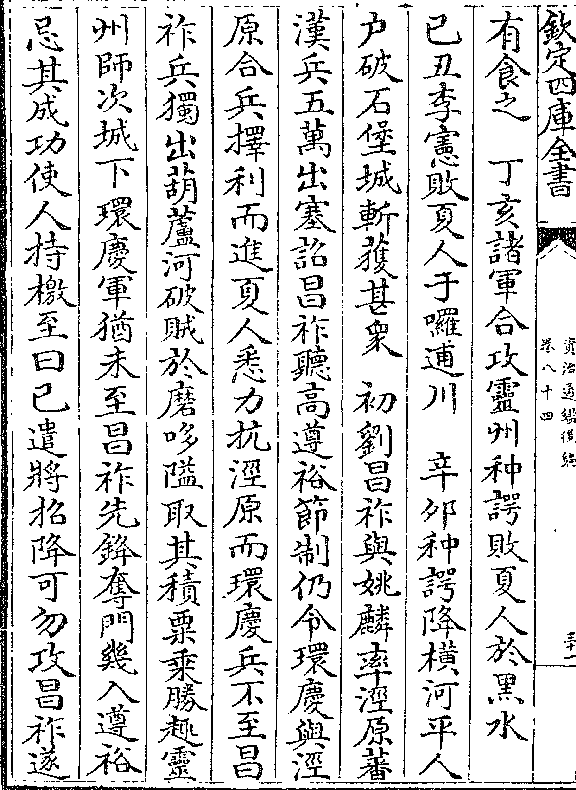 欽定四庫全書
資治通鑑後編
卷八十四
三十一
有食之　丁亥諸軍合攻靈州种諤敗夏人於黑水
已丑李憲敗夏人于囉逋川　辛卯种諤降橫河平人
户破石堡城斬獲甚衆　初劉昌祚與姚麟率涇原蕃
漢兵五萬出塞詔昌祚聽髙遵裕節制仍令環慶與涇
原合兵擇利而進夏人悉力抗涇原而環慶兵不至昌
祚兵獨出葫蘆河破賊於磨哆隘取其積粟乘勝趣靈
州師次城下環慶軍猶未至昌祚先鋒奪門幾入遵裕
忌其成功使人持檄至曰已遣將招降可勿攻昌祚遂